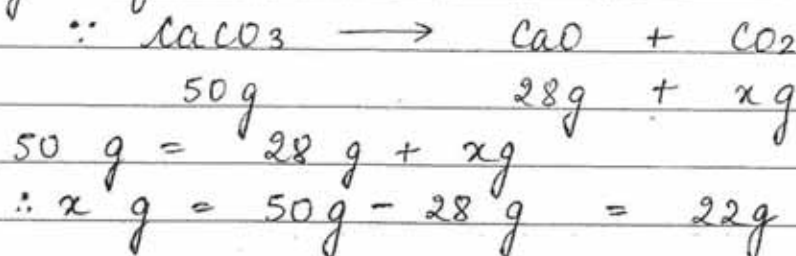 ∵ CaCO3 ⟶ CaO + CO2
50g 28g + xg
50 g = 28 g + xg
∴ x g = 50g - 28 g = 22g